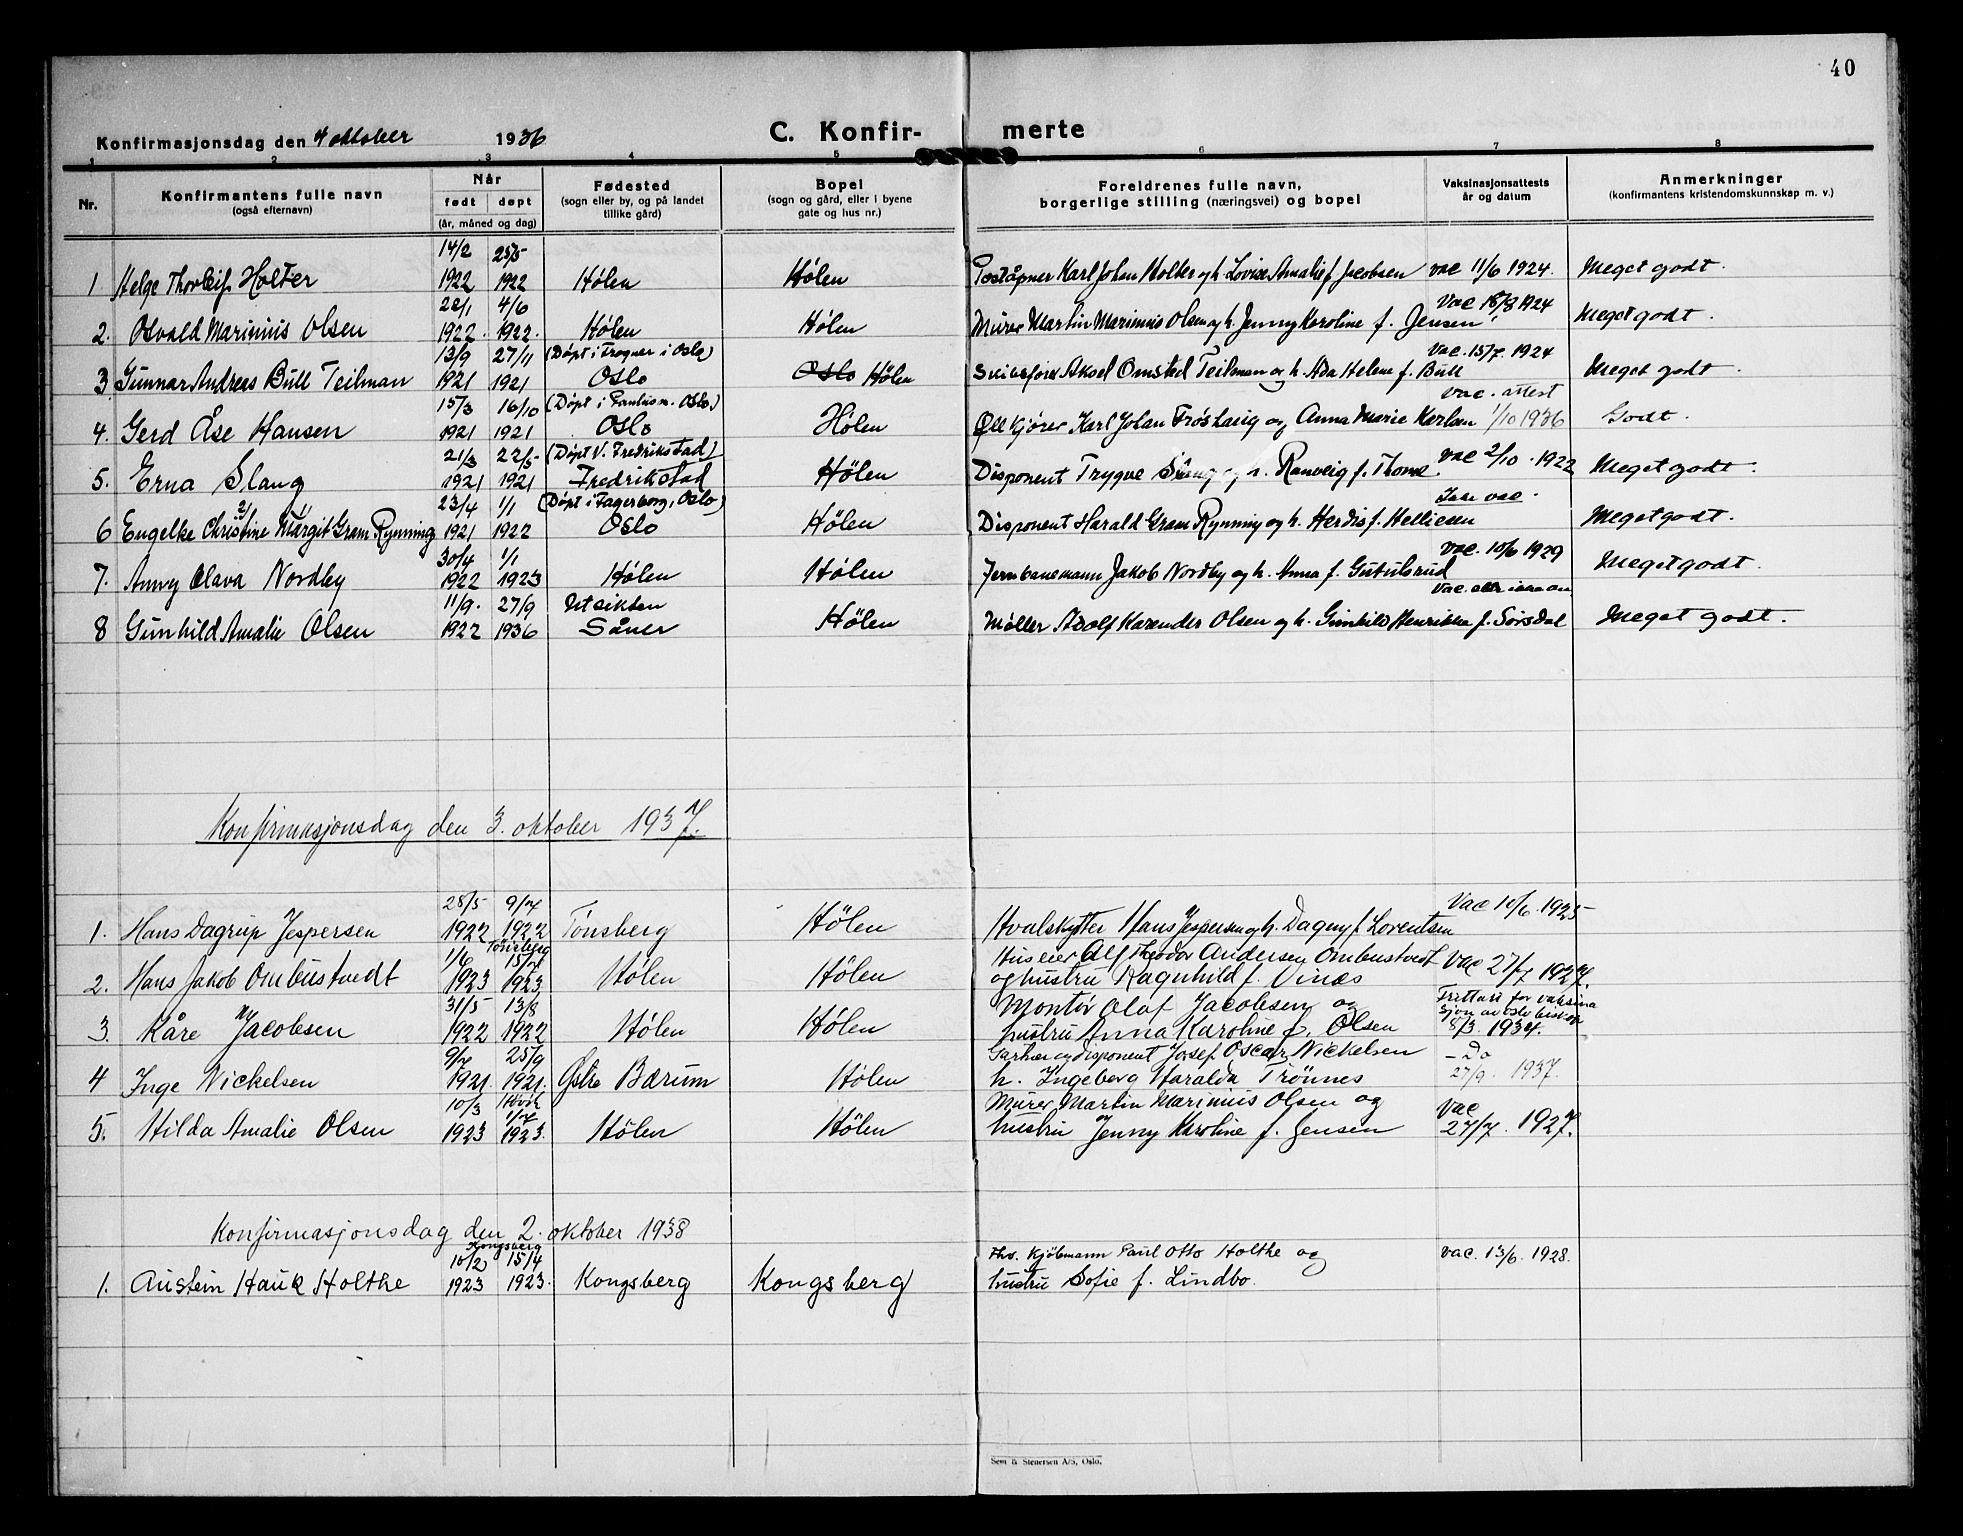 40
Konfirmasjonsdag den 4 oktober 1936
C. Konfir- merte
1 2 3 4 5 6 7 8
Nr.
Konfirmantens fulle navn
(også efternavn)
Når
født døpt
(år, måned og dag)
Fødested
(sogn eller by, og på landet
tillike gård)
Bopel
(sogn og gård, eller i byene
gate og hus nr.)
Foreldrenes fulle navn,
borgerlige stilling (næringsvei) og bopel
Vaksinasjonsattests
år og datum
Anmerkninger
(konfirmantens kristendomskunnskap m. v.)
14/2 25/5
1 Helge Thorleif Holter 1922 1922 Hølen Hølen Poståpner Karl Johan Holter og h. Lovise Amalie f. Jacobsen vac 11/6 1924. Meget godt.
22/1 4/6 Vac 18/8 1924
2. Osvald Marinius Olsen 1922. 1922. Hølen Hølen Murer Martin Marinius Olsen og h. Jenny Karoline f. Jensen Meget godt.
13/9 27/11 (Døpt i Frogner i Oslo) Vac. 15/7 1924
3 Gunnar Andreas Bull Teilman 1921 1921 Oslo Oslo Hølen Skibsfører Aksel Omsted Teilman og h. Ada Helene f. Bull Meget godt.
15/3 16/10 (Døpt i Paulus m. Oslo) Vac. attest
4. Gerd Åse Hansen 1921 1921 Oslo Hølen Ølkjører Karl Johan Frøshaug og Anna Marie Karlsen 1/10 1936 Godt.
21/3 22/5 (Døpt V. Fredrikstad)
5. Erna Slang 1921 1921 Fredrikstad Hølen Disponent Trygve Slang og h. Ranveig f. Thorne vac 2/10 1922 Meget godt.
23/4 1/1 (Døpt i Fagerborg, Oslo) Ikke vac.
6 Engelke Christine Margit Gram Rynning 1921 1922 Oslo Hølen Disponent Harald Gram Rynning og h. Herdis f. Helliesen Meget godt.
30/4 1/1 Vac. 10/6 1929
7. Anny Olava Nordby 1922 1923 Hølen Hølen Jernbanemann Jakob Nordby og h. Anna f. Gutulsrud Meget godt.
11/9. 27/9 Utsikten Vac.
8 Gunhild Amalie Olsen 1922 1936 Såner Hølen Møller Adolf Karender Olsen og h. Gunhild Henrikke f. Sørsdal Meget godt.
Konfirmasjonsdag den 3. oktober 1937.
28/5 9/7 Vac 10/6. 1925
1. Hans Dagrup Jespersen 1922 1922 Tønsberg Hølen Hvalskytter Hans Jespersen og h. Dagny f. Lorentsen
Tønsberg
1/6 15/7 Huseier Alf Theodor Andersen Ombustvedt
2. Hans Jakob Ombustvedt 1923 1923 Hølen Hølen og hustru Ragnhild f. Vinæs Vac 27/7 1927.
31/5 13/8 Montør Olaf Jacobsen og Frittatt for vaksina
3. Kåre Jacobsen 1922 1922 Hølen Hølen hustru Anna Karoline f. Olsen sjon av Oslo biskop
8/3 1934.
9/7 25/9 Gartner og disponent Josef Oscar Nickelsen – Do
4 Inge Nickelsen 1921. 1921. Østre Bærum Hølen h. Ingeborg Haralda Trønnes 27/9. 1937.
Høvik
10/3 1/7 Murer Martin Marinius Olsen og Vac
5. Hilda Amalie Olsen 1923 1923. Hølen Hølen hustru Jenny Karoline f. Jensen 27/7. 1927.
Konfirmasjonsdag den 2. oktober 1938
Kongsberg
10/2 15/4 Fhv. Kjøbmann Paul Otto Holthe og vac. 13/6. 1928.
1. Austein Hauk Holthe 1923 1923. Kongsberg Kongsberg hustru Sofie f. Lindbo.
Sem & Stenersen A/S, Oslo.